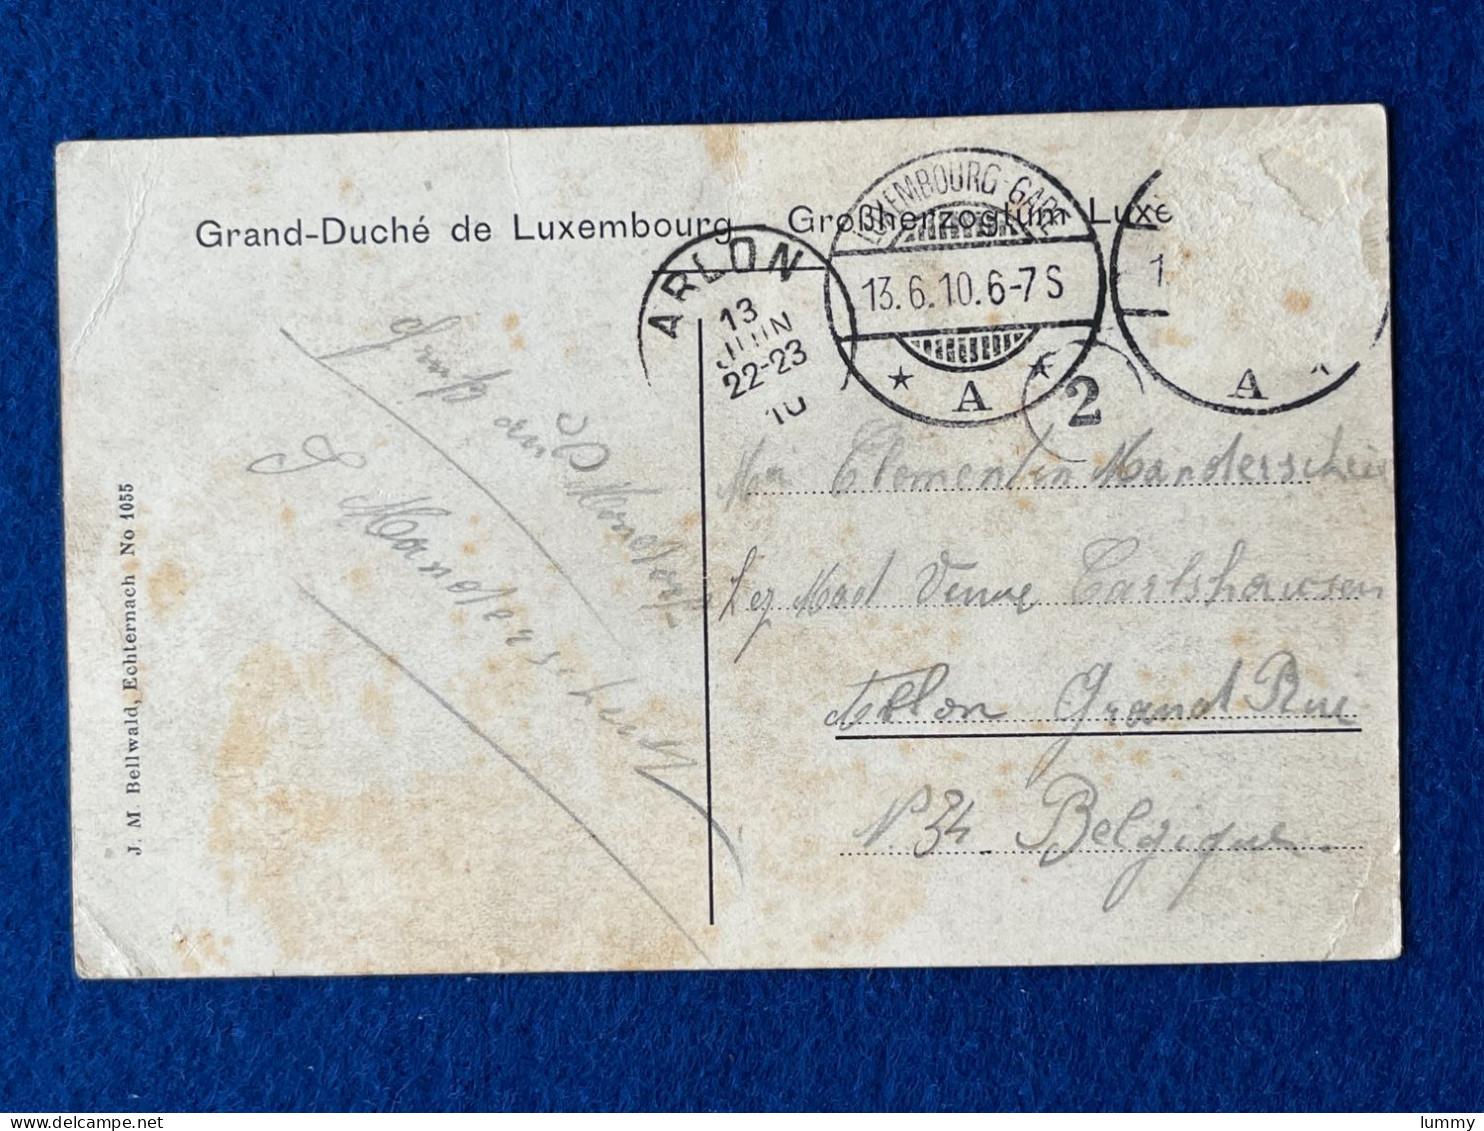 Grand-Duché de Luxembourg Großherzogtum Luxe
LUXEMBOURG-GARE
13.6.10.6-7S
A
ARLON
13
JUIN
22-23
10
2
1.
A
J. M. Bellwald, Echternach No 1055
Gruß aus
Mondorf
J Manderscheid
Clementin Manderscheid
Mad Veuve Carlshausen
Arlon Grand Rue
N. 34 Belgique.
delcampe.net
lummy